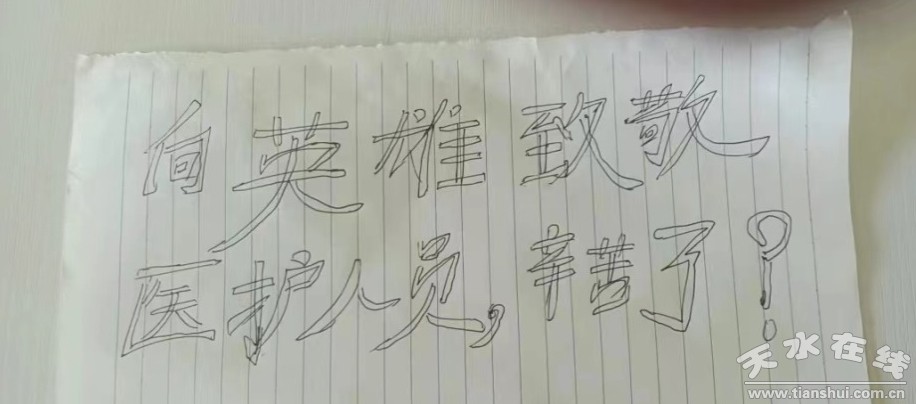 向英雄致敬
医护人员,辛苦了?
天水在线
www.tianshui.com.cn